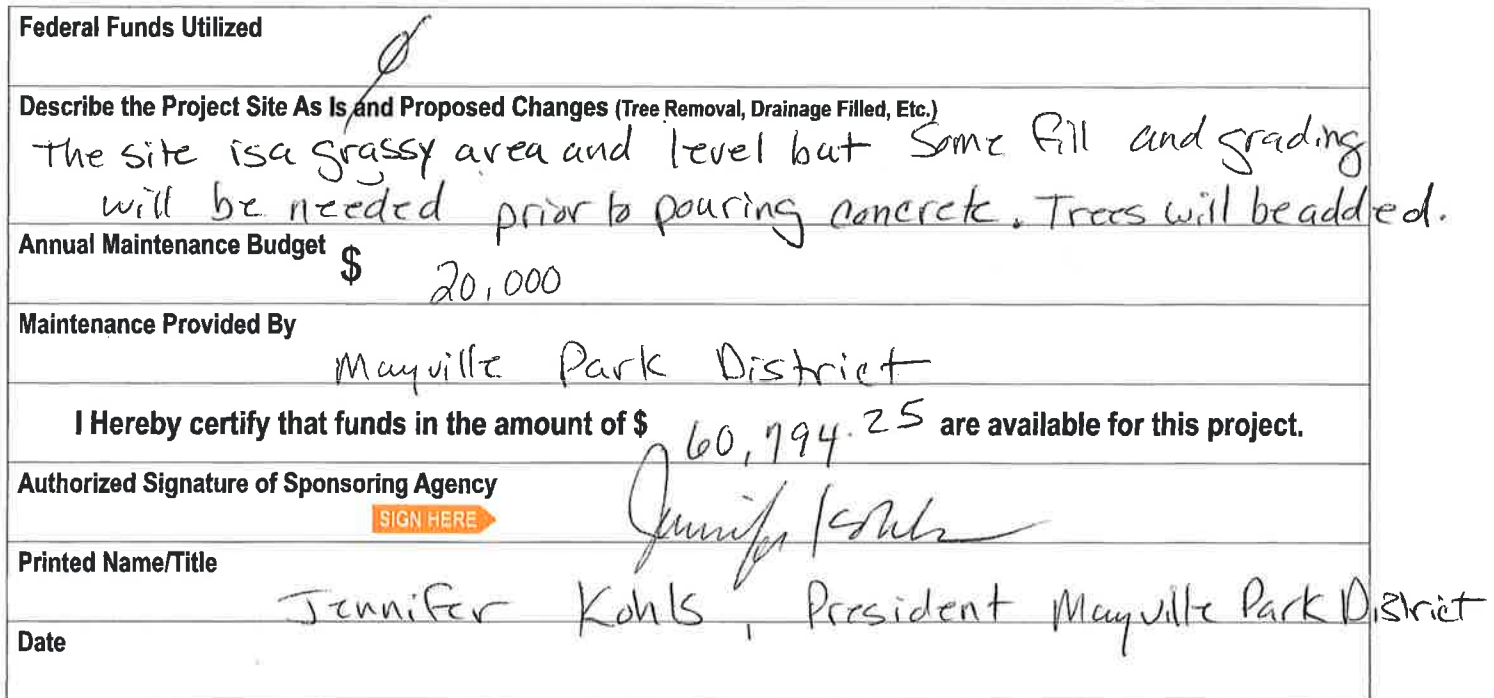 Federal Funds Utilized
Ø
Describe the Project Site As Is and Proposed Changes (Tree Removal, Drainage Filled, Etc.)
The site is a grassy area and level but Some fill and grading
will be needed prior to pouring concrete. Trees will be added.
Annual Maintenance Budget $ 20,000
Maintenance Provided By
Mayville Park District
I Hereby certify that funds in the amount of $ 60,794.25 are available for this project.
Authorized Signature of Sponsoring Agency
SIGN HERE Jennifer Kohls
Printed Name/Title
Jennifer Kohls, President Mayville Park District
Date